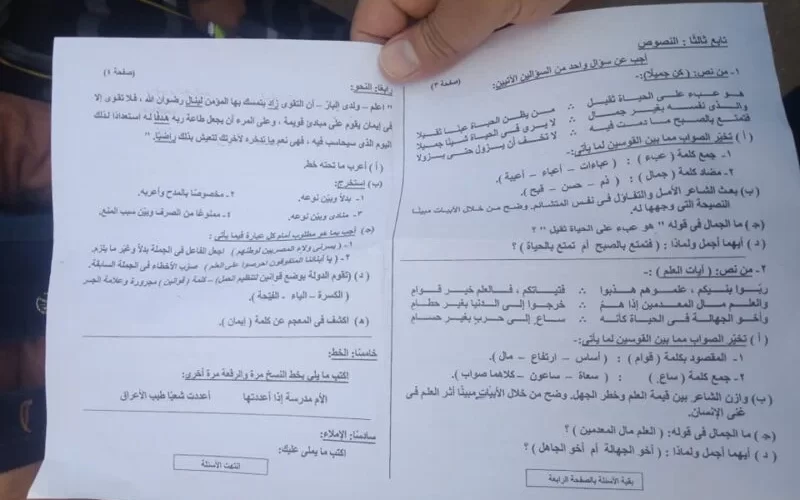 تابع ثالثًا : النصوص
أجب عن سؤال واحد من السؤالين الآتيين:
(صفحة ٣)
١- من نص: ( كن جميلًا ):-
هو عبء على الحياة ثقيل ∴ من يظن الحياة عبئًا ثقيلا
والذى نفسه بغير جمال ∴ لا يرى فى الحياة شيئًا جميلا
فتمتع بالصبح ما دمت فيه ∴ لا تخف أن يزول حتى يزولا
( أ ) تخيّر الصواب مما بين القوسين لما يأتى:-
١- جمع كلمة ( عبء ) : ( عباءات – أعباء – أعبية ).
٢- مضاد كلمة ( جمال ) : ( ذم – حسن – قبح ).
(ب) بعث الشاعر الأمل والتفاؤل فى نفس المتشائم. وضح من خلال الأبيات مبينًا
النصيحة التى وجهها له.
(جـ) ما الجمال فى قوله " هو عبء على الحياة ثقيل " ؟
( د ) أيهما أجمل ولماذا : ( فتمتع بالصبح أم تمتع بالحياة ) ؟
٢- من نص: ( آيات العلم ) :-
ربّوا بنيكم ، علموهم هذبوا ∴ فتياتكم ، فالعلم خير قوام
والعلم مال المعدمين إذا هم ∴ خرجوا إلى الدنيا بغير حطام
وأخو الجهالة فى الحياة كأنه ∴ ساع إلى حرب بغير حسام
( أ ) تخيّر الصواب مما بين القوسين لما يأتى:-
١- المقصود بكلمة ( قوام ) : ( أساس – ارتفاع – مال ).
٢- جمع كلمة ( ساع ) : ( سعاة – ساعون – كلاهما صواب ).
(ب) وازن الشاعر بين قيمة العلم وخطر الجهل. وضح من خلال الأبيات مبينًا أثر العلم فى
غنى الإنسان.
(جـ) ما الجمال فى قوله: ( العلم مال المعدمين ) ؟
( د ) أيهما أجمل ولماذا : ( أخو الجهالة أم أخو الجاهل ) ؟
بقية الأسئلة بالصفحة الرابعة
(صفحة ٤)
رابعًا: النحو:
" اعلم – ولدى البار – أن التقوى زاد يتمسك بها المؤمن لينال رضوان الله ، فلا تقوى إلا
فى إيمان يقوم على مبادئ قويمة ، وعلى المرء أن يجعل طاعة ربه هدفًا له استعدادًا لذلك
اليوم الذى سيحاسب فيه ، فهى نعم ما تدخره لآخرتك لتعيش بذلك راضيًا. "
( أ ) أعرب ما تحته خط.
(ب) استخرج:
١- بدلًا وبيّن نوعه. ٢- مخصوصًا بالمدح وأعربه.
٣- منادى وبيّن نوعه. ٤- ممنوعًا من الصرف وبيّن سبب المنع.
(جـ) أجب بما هو مطلوب أمام كل عبارة فيما يأتى :
١- ( يسرنى ولاء المصريين لوطنهم ) اجعل الفاعل فى الجملة بدلًا وغيّر ما يلزم.
٢- ( يا أبنائنا المتفوقون احرصوا على العلم ) صوّب الأخطاء فى الجملة السابقة.
( د ) (تقوم الدولة بوضع قوانين لتنظيم العمل) – كلمة ( قوانين ) مجرورة وعلامة الجر
( الكسرة – الياء – الفتحة ).
(هـ) اكشف فى المعجم عن كلمة ( إيمان ).
خامسًا: الخط:
اكتب ما يلى بخط النسخ مرة والرقعة مرة أخرى:
الأم مدرسة إذا أعددتها أعددت شعبًا طيب الأعراق
سادسًا: الإملاء:
اكتب ما يملى عليك:
انتهت الأسئلة